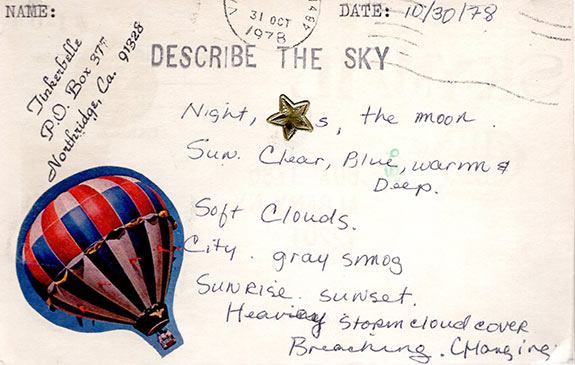 NAME:
DATE: 10/30/78
31 OCT
1978
Tinkerbelle
P.O. Box 377
Northridge, Ca. 91328
DESCRIBE THE SKY
Night, s, the moon.
Sun. Clear, Blue, warm &
Deep.
Soft Clouds.
City. gray smog
Sunrise. sunset.
Heavy storm cloud cover
Breaching. Changing.